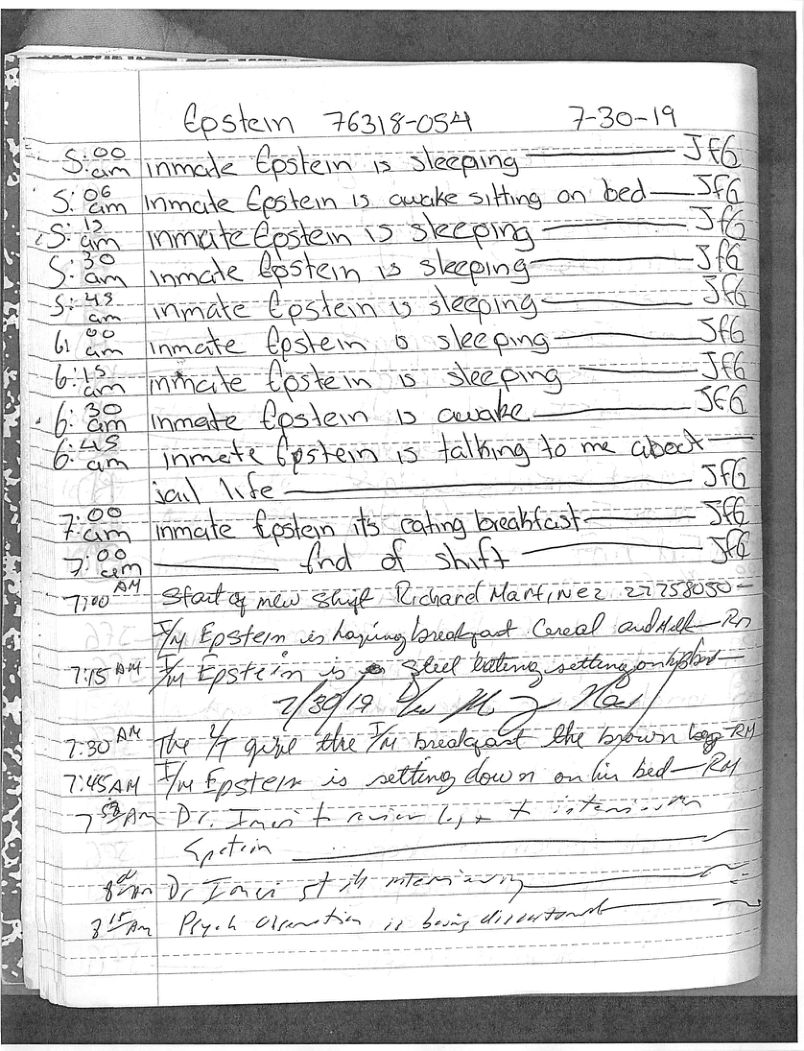 Epstein 76318-054 7-30-19
5:00 am inmate Epstein is sleeping JFG
5:06 am inmate Epstein is awake sitting on bed JFG
5:15 am inmate Epstein is sleeping JFG
5:30 am inmate Epstein is sleeping JFG
5:45 am inmate Epstein is sleeping JFG
6:00 am inmate Epstein is sleeping JFG
6:15 am inmate Epstein is sleeping JFG
6:30 am inmate Epstein is awake JFG
6:45 am inmate Epstein is talking to me about
jail life JFG
7:00 am inmate Epstein its eating breakfast JFG
7:00 am End of shift JFG
7:00 AM Start of new shift Richard Martinez 27758050
I/M Epstein is having breakfast Cereal and Milk RM
7:15 AM I/M Epstein is steel eating setting on his bed
7/30/19
7:30 AM The give the I/M breakfast the brown bag RM
7:45 AM I/M Epstein is setting down on his bed RM
AM Dr. to review log + interview
Epstein
8 00 Am Dr still interviewing
8 15 Am Psych observation is being discontinued